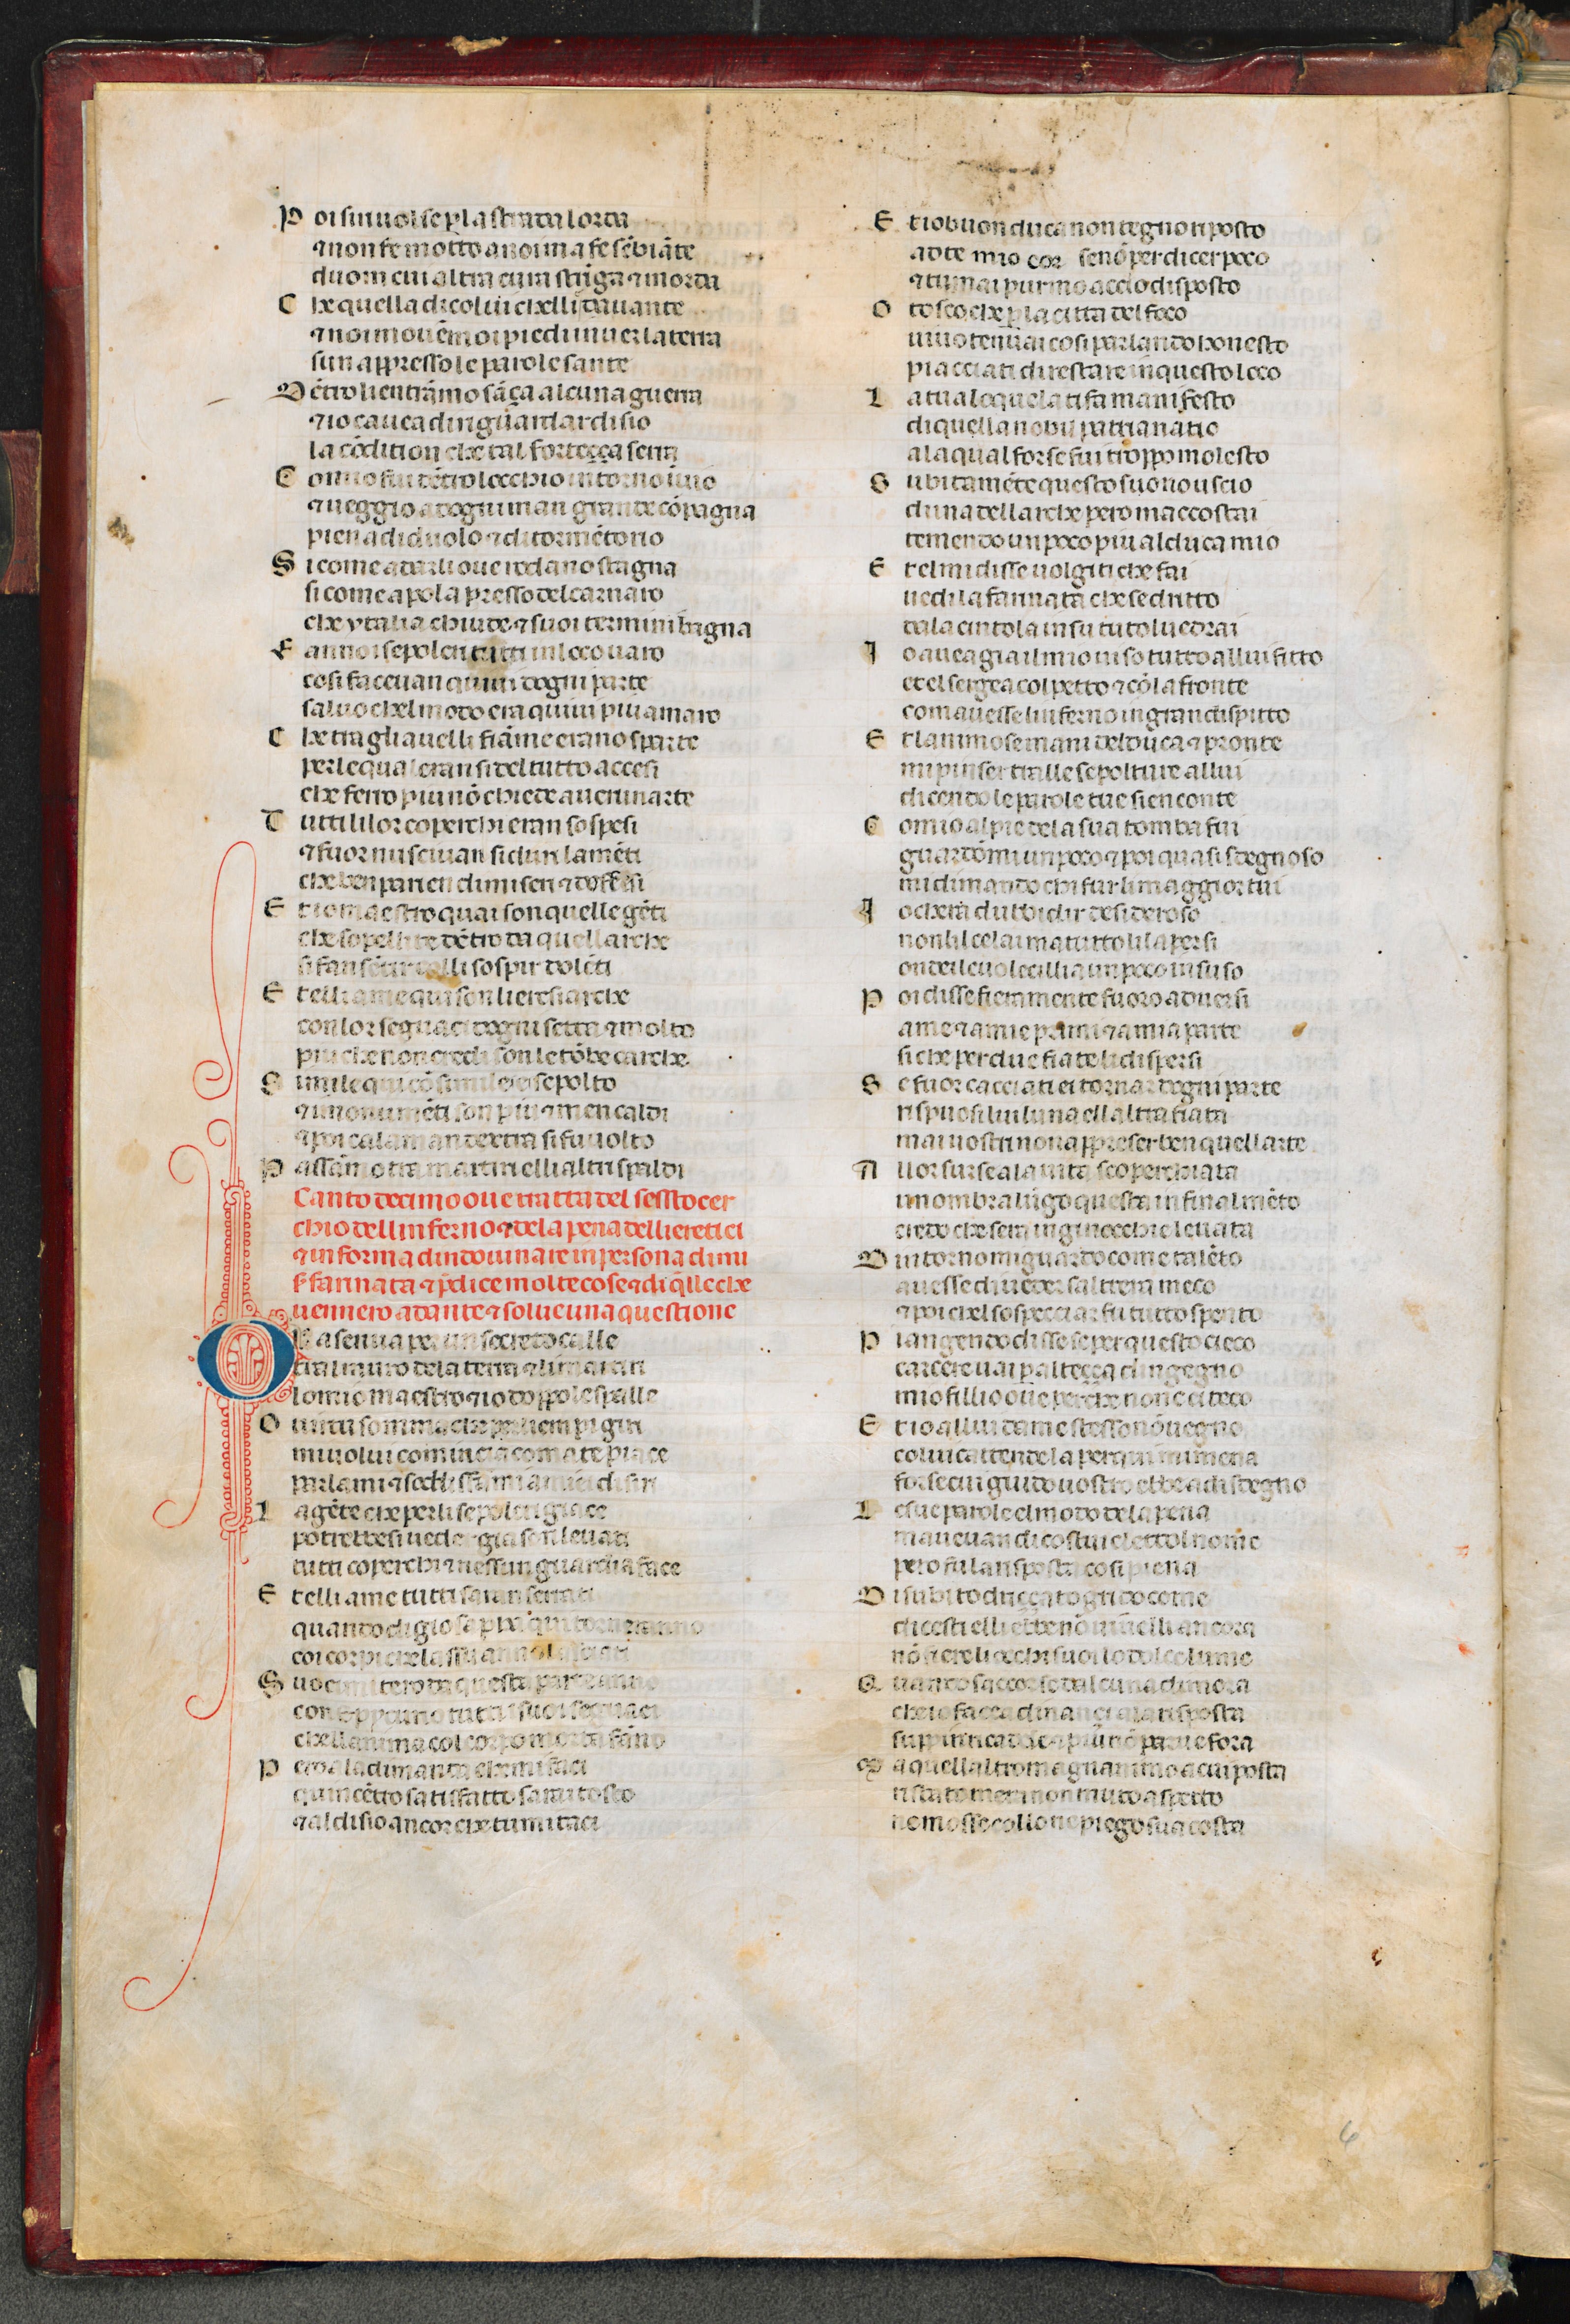 Poi si riuolse p la strada lorda
⁊ non fe motto a noi ma fe sēbiāte
duom cui altra cura stringa ⁊ morda
Che quella di colui chelli dauante
⁊ noi mouēmo i piedi inuer la terra
sun appresso le parole sante
Dētro li entrāmo sāça alcuna guerra
⁊ io cauea di riguardar disio
la cōdition che tal forteçça serra
Comio fui dētro locchio intorno īuio
⁊ ueggio ad ogni man grande cōpagna
piena di duolo ⁊ di tormēto rio
Si come ad arli oue rodano stagna
si come a pola presso del carnaro
che ytalia chiude ⁊ suoi termini bagna
Fanno i sepolcri tutti il loco uaro
cosi faceuan quiui dogni parte
saluo chel modo era quiui piu amaro
Che tra gli auelli fiāme erano sparte
per le quali eran si del tutto accesi
che ferro piu nō chiede a uerun arte
Tutti li lor coperchi eran sospesi
⁊ fuor nusciuan si duri lamēti
che ben parien di miseri ⁊ doffesi
Et io maestro quai son quelle gēti
che sopellite dētro da quellarche
si fan sētir colli sospir dolēti
Et elli a me qui son li eresiarche
con lor seguaci dogni setta ⁊ molto
piu che non credi son le tōbe carche
Simile qui cō simile e sepolto
⁊ i monumēti son piu ⁊ men caldi
⁊ poi cala man dextra si fu uolto
Passāmo tra martiri elli alti spaldi
Canto decimo oue tratta del sessto cer
chio dell inferno ⁊ de la pena delli eretici
⁊ in forma dindouinare in persona di mi
s̄ farinata ⁊ p̄dice molte cose ⁊ di q̄lle che
uennero a dante ⁊ solue una questione
Ora sen ua per un secreto calle
tral muro de la terra ⁊ li martiri
lo mio maestro ⁊ io doppo le spalle
O uirtu somma che per li empi giri
mi uolui cominciai coma te piace
parlami ⁊ sodissfāmi a miei disiri
La gēte che per li sepolcri giace
potrebbesi ueder gia son leuati
tutti coperchi ⁊ nessun guardia face
Et elli a me tutti saran serrati
quando di giosaphà qui torneranno
coi corpi che lassu anno lasciati
Suo cimitero da questa parte anno
con eppycuro tutti i suoi seguaci
chellanima col corpo morta fāno
Pero a la dimanda che mi faci
quincētro satisfatto sarai tosto
⁊ al disio ancor che tu mi taci
Et io buon duca non tegno riposto
ad te mio cor se nō per dicer poco
⁊ tu mai pur mo accio disposto
O tosco che p la citta del foco
uiuo ten uai cosi parlando honesto
piacciati di restare in questo loco
La tua loquela ti fa manifesto
di quella nobil patria natio
a la qual forse fui troppo molesto
Subitamēte questo suono uscio
duna dellarche pero maccostai
temendo un poco piu al duca mio
Et el mi disse uolgiti che fai
uedi la farinata che se dritto
da la cintola in su tutto luedrai
Io auea gia il mio uiso tutto allui fitto
et el sergea col petto ⁊ cō la fronte
comauesse linferno in gran dispitto
Et lanimose mani del duca ⁊ pronte
mi pinser tra lle sepolture allui
dicendo le parole tue sien conte
Comio al pie de la sua tomba fui
guardōmi un poco ⁊ poi quasi sdegnoso
mi dimando chi fur li maggior tui
Io chera dubbidir desideroso
non lil celai ma tutto lil apersi
ondei leuo le cillia un poco in suso
Poi disse fieramente furo aduersi
a me ⁊ a mie primi ⁊ a mia parte
si che per due fiate li dispersi
Se fuor cacciati ei tornar dogni parte
rispuosi lui luna ellaltra fiata
ma i uostri non appreser ben quellarte
Allor surse a la uista scoperchiata
unombra lūgo questa in fin al mēto
credo che sera in ginocchie leuata
Dintorno mi guardo come talēto
auesse di ueder saltrera meco
⁊ poi chel sospecciar fu tutto spento
Piangendo disse se per questo cieco
carcere uai p alteçça dingegno
mio fillio oue e perche non e ei teco
Et io allui da me stesso nō uegno
colui cattende la per qui mi mena
forse cui guido uostro ebbe a disdegno
Le sue parole el modo de la pena
maueuan di costui gia letto il nome
pero fu la risposta cosi piena
Di subito driççato grido come
dicesti elli ebbe nō uiuelli ancora
nō fiere li occhi suoi lo dolce lume
Quando saccorse dalcuna dimora
cheio facea dinançi a la risposta
suppin ricadde ⁊ piu nō parue fora
Ma quellaltro magnanimo a cui posta
ristato mera non muto aspetto
ne mosse collo ne piego sua costa
6